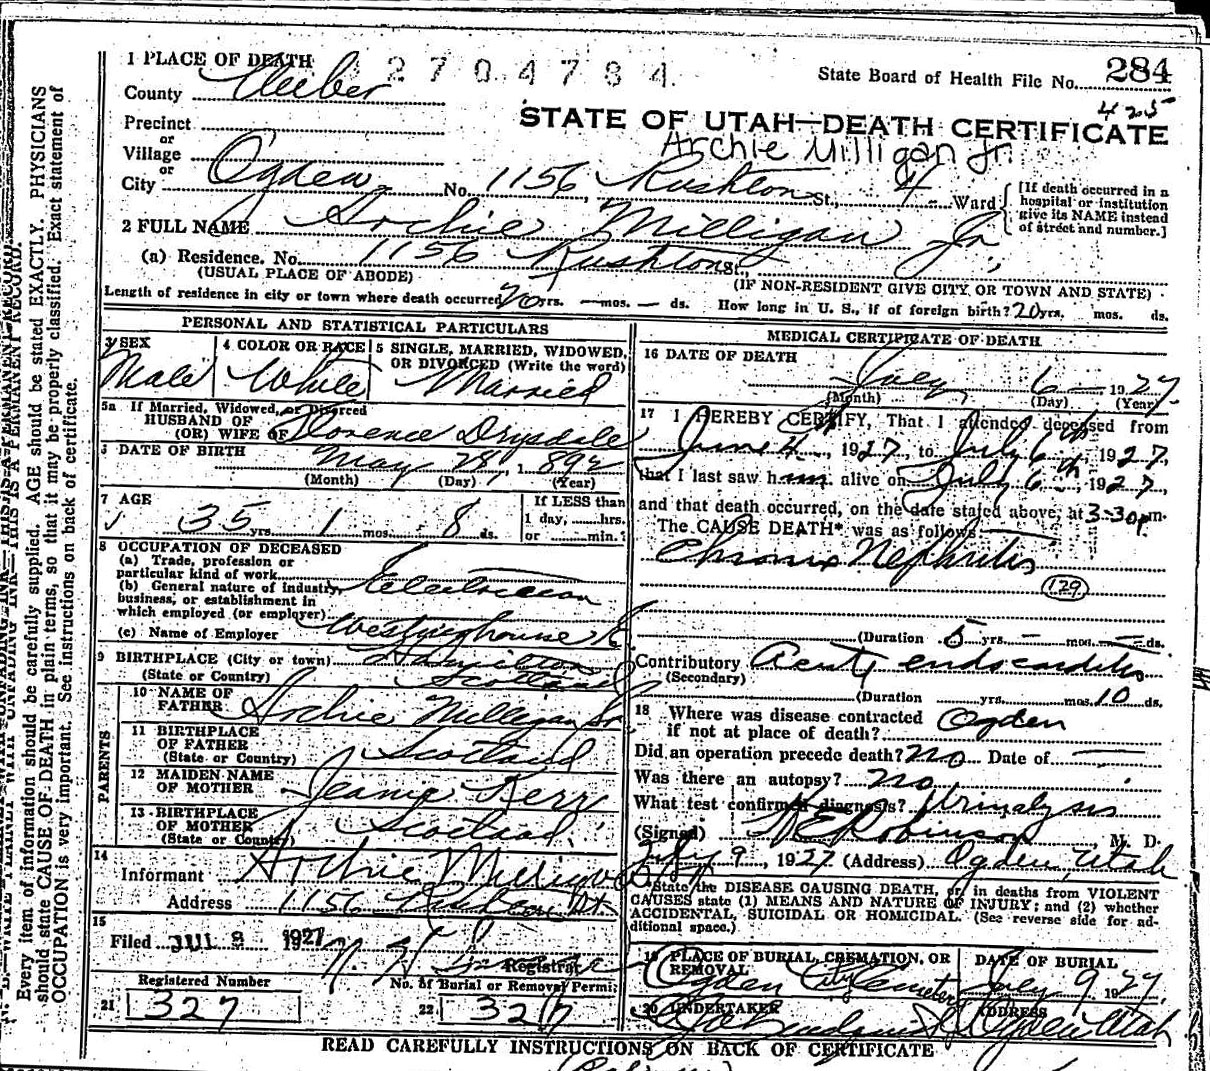 1 PLACE OF DEATH 2 7 0 4 7 8 4
State Board of Health File No. 284
County Weber
425
STATE OF UTAH—DEATH CERTIFICATE
Precinct
or
Archie Milligan Jr.
Village
or
City Ogden, No. 1156 Rushton St., 4 Ward
[If death occurred in a
hospital or institution
give its NAME instead
of street and number.]
2 FULL NAME Archie Milligan Jr
(a) Residence. No. 1156 Rushton St.,
(USUAL PLACE OF ABODE) (IF NON-RESIDENT GIVE CITY OR TOWN AND STATE)
Length of residence in city or town where death occurred 20 yrs. — mos. — ds. How long in U. S., if of foreign birth? 20 yrs. mos. ds.
PERSONAL AND STATISTICAL PARTICULARS
3 SEX
Male
4 COLOR OR RACE
White
5 SINGLE, MARRIED, WIDOWED,
OR DIVORCED (Write the word)
Married
5a If Married, Widowed, or Divorced
HUSBAND OF
(OR) WIFE OF Florence Drysdale
6 DATE OF BIRTH
May 28, 1892
(Month) (Day) (Year)
7 AGE
35 yrs. 1 mos. 8 ds.
If LESS than
1 day, hrs.
or min.?
8 OCCUPATION OF DECEASED
(a) Trade, profession or
particular kind of work
(b) General nature of industry,
business, or establishment in
which employed (or employer)
Electrician
(c) Name of Employer Westinghouse
9 BIRTHPLACE (City or town) Hamilton
(State or Country) Scotland
PARENTS
10 NAME OF
FATHER Archie Milligan Sr
11 BIRTHPLACE
OF FATHER
(State or Country) Scotland
12 MAIDEN NAME
OF MOTHER Jeanie Kerr
13 BIRTHPLACE
OF MOTHER
(State or Country) Scotland
14
Informant Archie Milligan
Address 1156 Rushton St.
15
Filed JUL 8 1927
Registrar
Registered Number
21 327
No. of Burial or Removal Permit
22 327
MEDICAL CERTIFICATE OF DEATH
16 DATE OF DEATH
July 6 — 1927
(Month) (Day) (Year)
17 I HEREBY CERTIFY, That I attended deceased from
June 4, 1927, to July 6th, 1927,
that I last saw him alive on July 6th, 1927,
and that death occurred, on the date stated above, at 3-30 p. m.
The CAUSE DEATH* was as follows:
Chronic Nephritis
129
(Duration 5 yrs. — mos. — ds.
Contributory Acute endocarditis
(Secondary)
(Duration yrs. mos. 10 ds.
18 Where was disease contracted
if not at place of death? Ogden
Did an operation precede death? No Date of —
Was there an autopsy? No
What test confirmed diagnosis? Urinalysis
(Signed) Robinson M. D.
July 9, 1927 (Address) Ogden, Utah
*State the DISEASE CAUSING DEATH, or, in deaths from VIOLENT
CAUSES state (1) MEANS AND NATURE OF INJURY; and (2) whether
ACCIDENTAL, SUICIDAL OR HOMICIDAL. (See reverse side for ad-
ditional space.)
19 PLACE OF BURIAL, CREMATION, OR
REMOVAL
Ogden City Cemetery
DATE OF BURIAL
July 9 1927.
20 UNDERTAKER
ADDRESS
Ogden Utah
READ CAREFULLY INSTRUCTIONS ON BACK OF CERTIFICATE
Every item of information should be carefully supplied. AGE should be stated EXACTLY. PHYSICIANS
should state CAUSE OF DEATH in plain terms, so that it may be properly classified. Exact statement of
OCCUPATION is very important. See instructions on back of certificate.